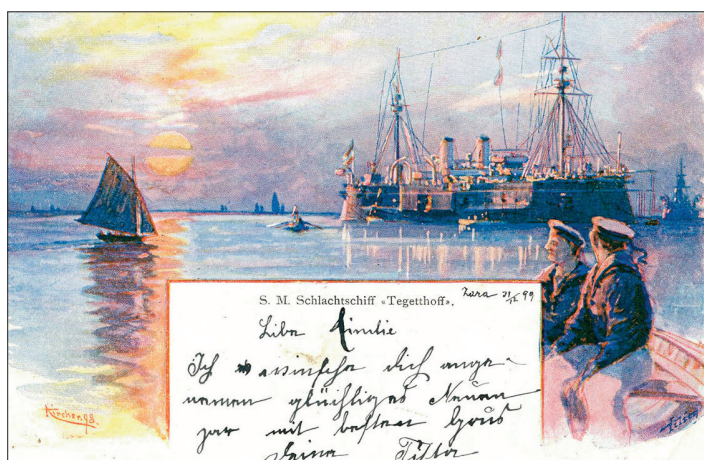 S. M. Schlachtschiff «Tegetthoff».
Zara 31/XII 99
Libe Emilie
Ich wuinsche dich ange-
nemen glückliges Neuen
jar mit besten Grus
Deine
Kircher 98.